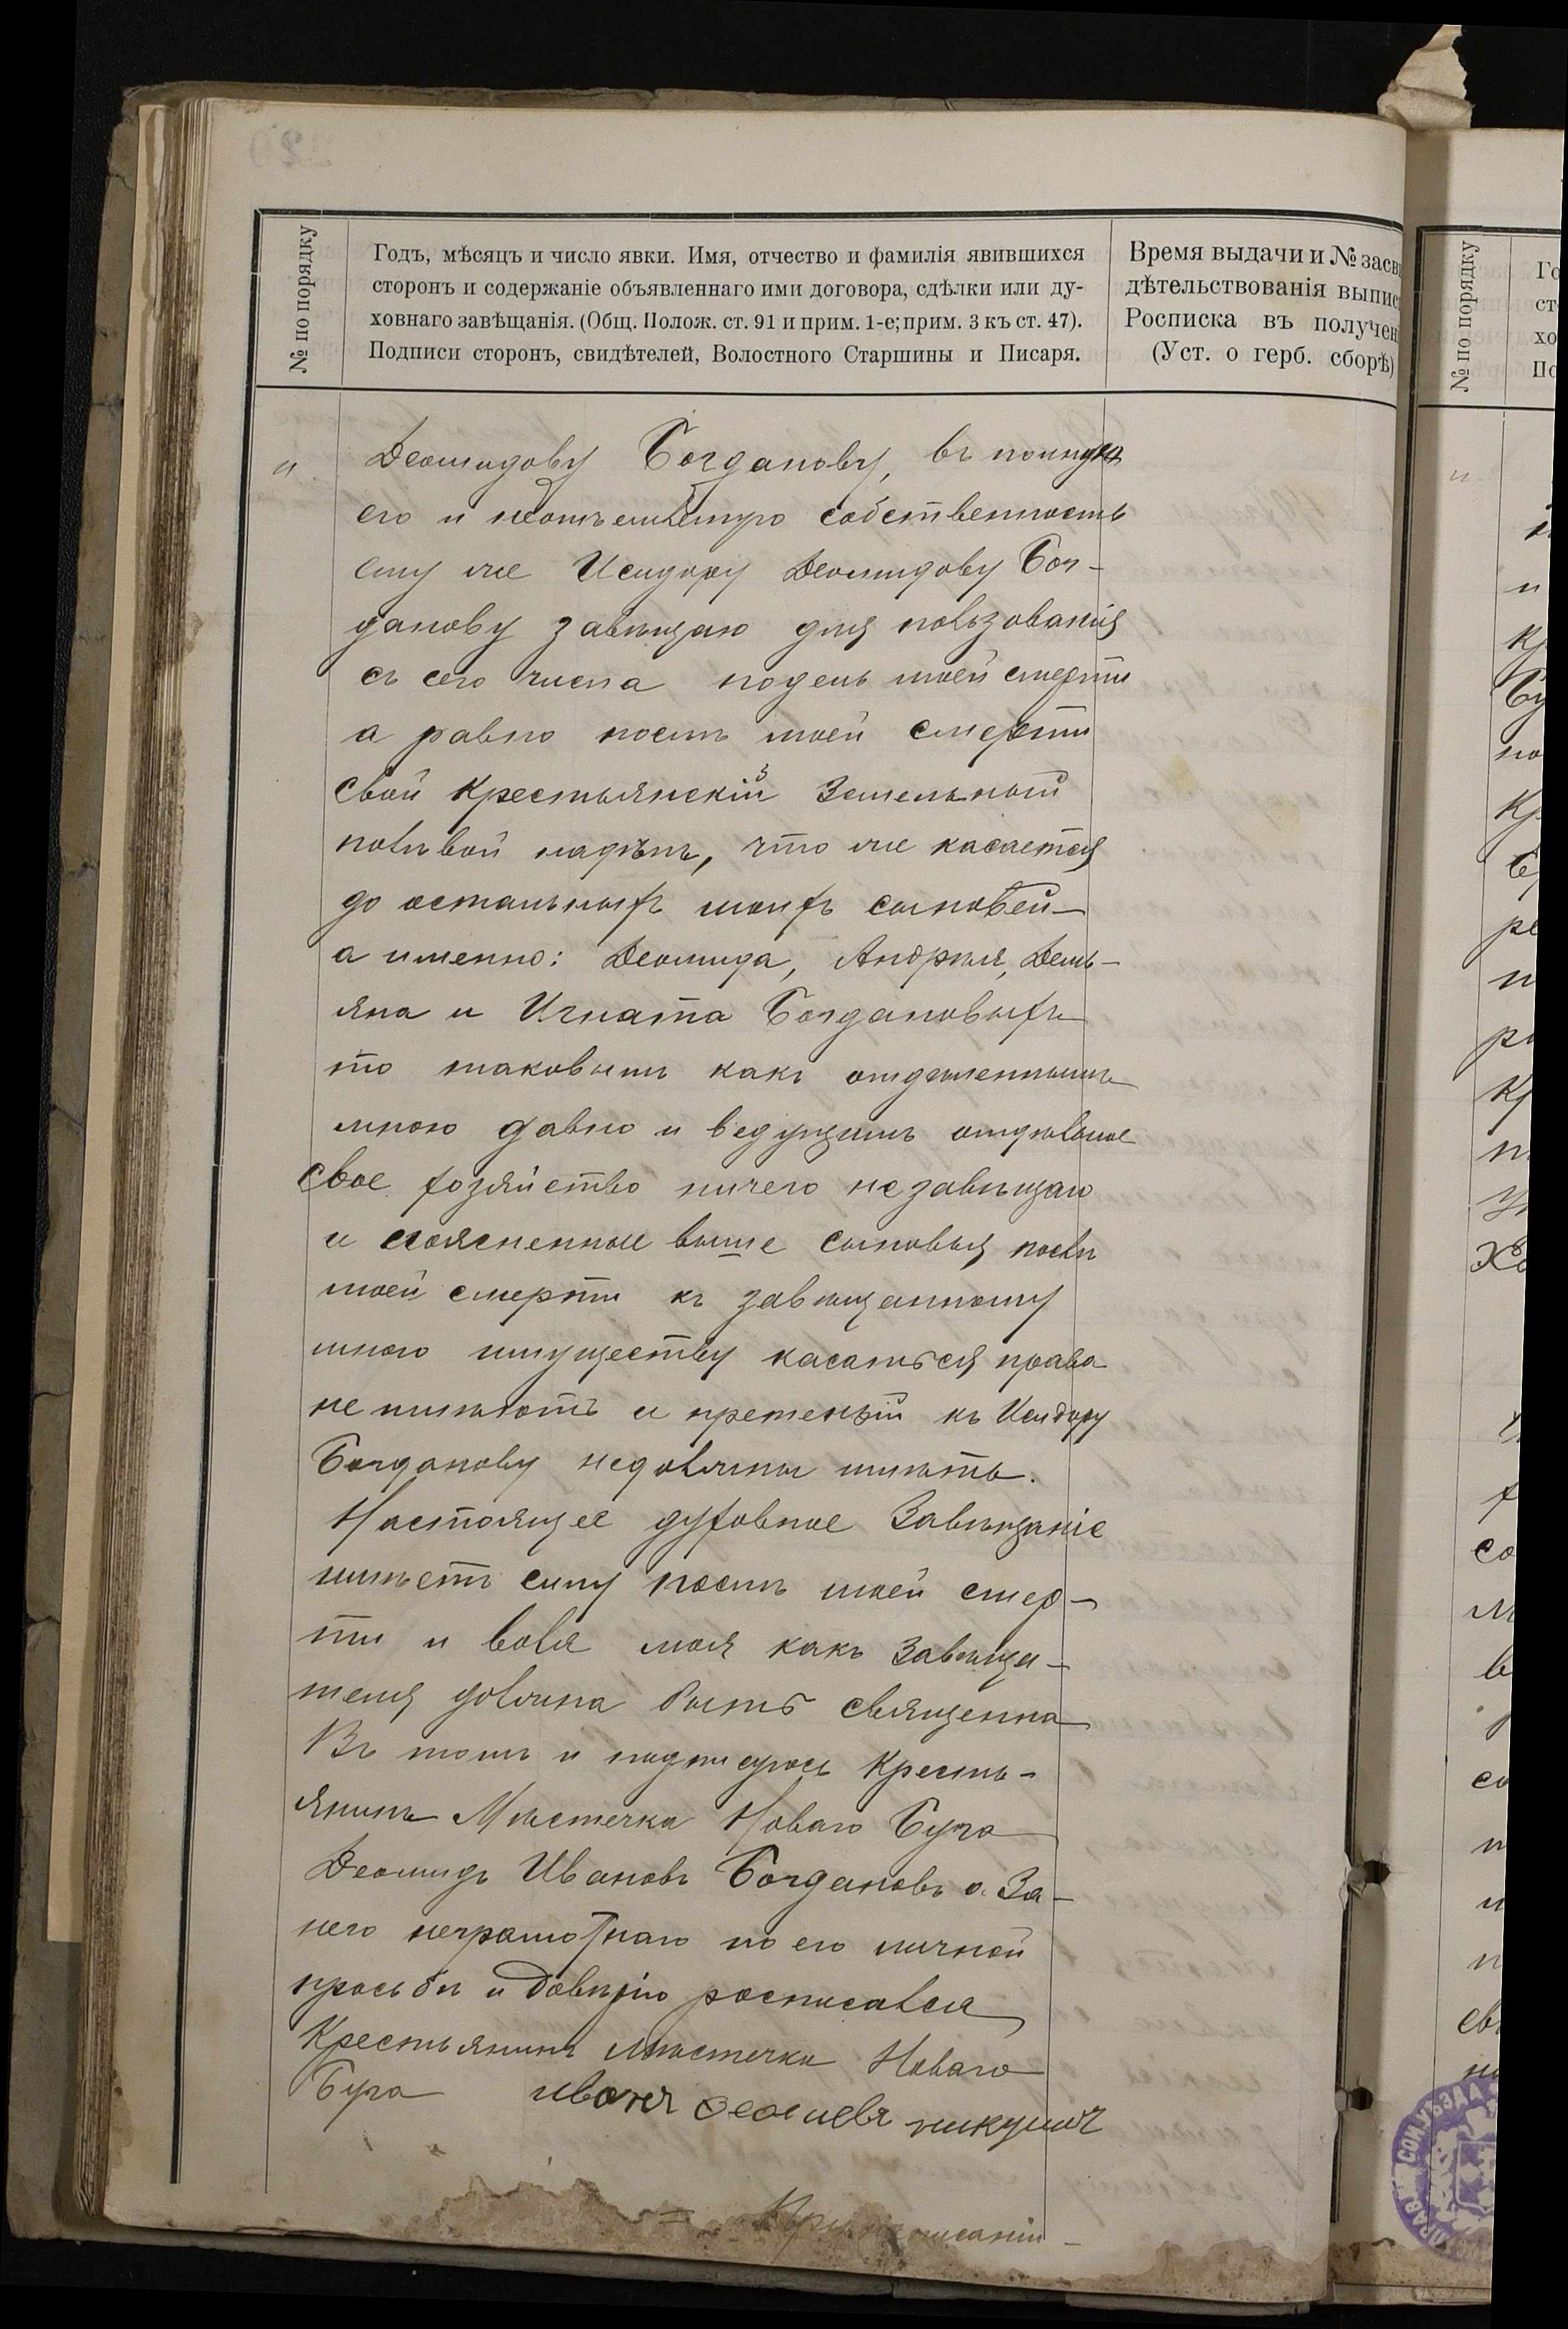 № по порядку
Годъ, мѣсяцъ и число явки. Имя, отчество и фамилія явившихся
сторонъ и содержаніе объявленнаго ими договора, сдѣлки или ду-
ховнаго завѣщанія. (Общ. Полож. ст. 91 и прим. 1-е; прим. 3 къ ст. 47).
Подписи сторонъ, свидѣтелей, Волостного Старшины и Писаря.
Время выдачи и № засви
дѣтельствованія выпис
Росписка въ получен
(Уст. о герб. сборѣ)
Деомидову Богданову, въ полную
его и неотъемлемую собственность
ему же Исидору Деомидову Бог-
данову завѣщаю для пользованія
съ сего числа подень моей смерти
а равно послѣ моей смерти
свой крестьянскій земельный
полѣвой надѣлъ, что же касается
до остальныхъ моихъ сыновей
а именно: Деомида, Андрея, Демь-
яна и Игната Богдановыхъ
то таковымъ какъ отделеннымъ
мною давно и ведущимъ отдѣльное
свое хозяйство ничего незавѣщаю
и поясненные выше сыновья послѣ
моей смерти къ завѣщанному
мною имуществу касаться права
не имѣютъ и претензій къ Исидору
Богданову недолжны имѣть.
Настоящее духовное Завѣщаніе
имѣетъ силу послѣ моей смер-
ти и воля моя какъ Завѣща-
теля должна быть священна
Въ томъ и подписуюсь Кресть-
янинъ Мѣстечка Новаго Буга
Деомидъ Ивановъ Богдановъ а За
него неграмотнаго по его личной
просьбѣ и довѣрію росписался
Крестьянинъ Мѣстечка Новаго
Буга Иванъ
№ по порядку